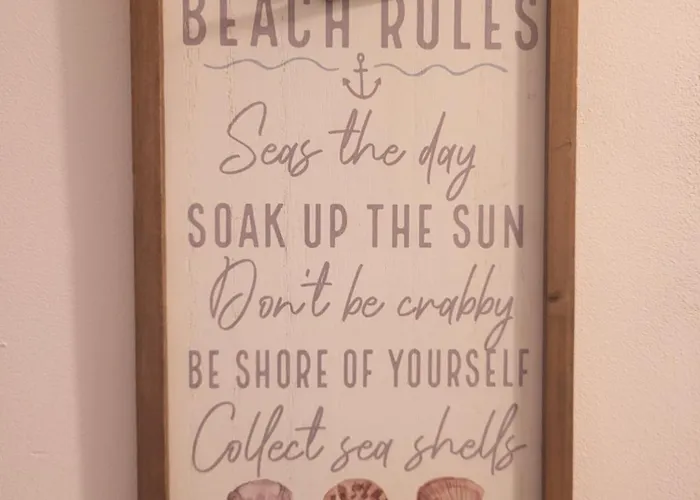 BEACH RULES
Seas the day
SOAK UP THE SUN
Don't be crabby
BE SHORE OF YOURSELF
Collect sea shells